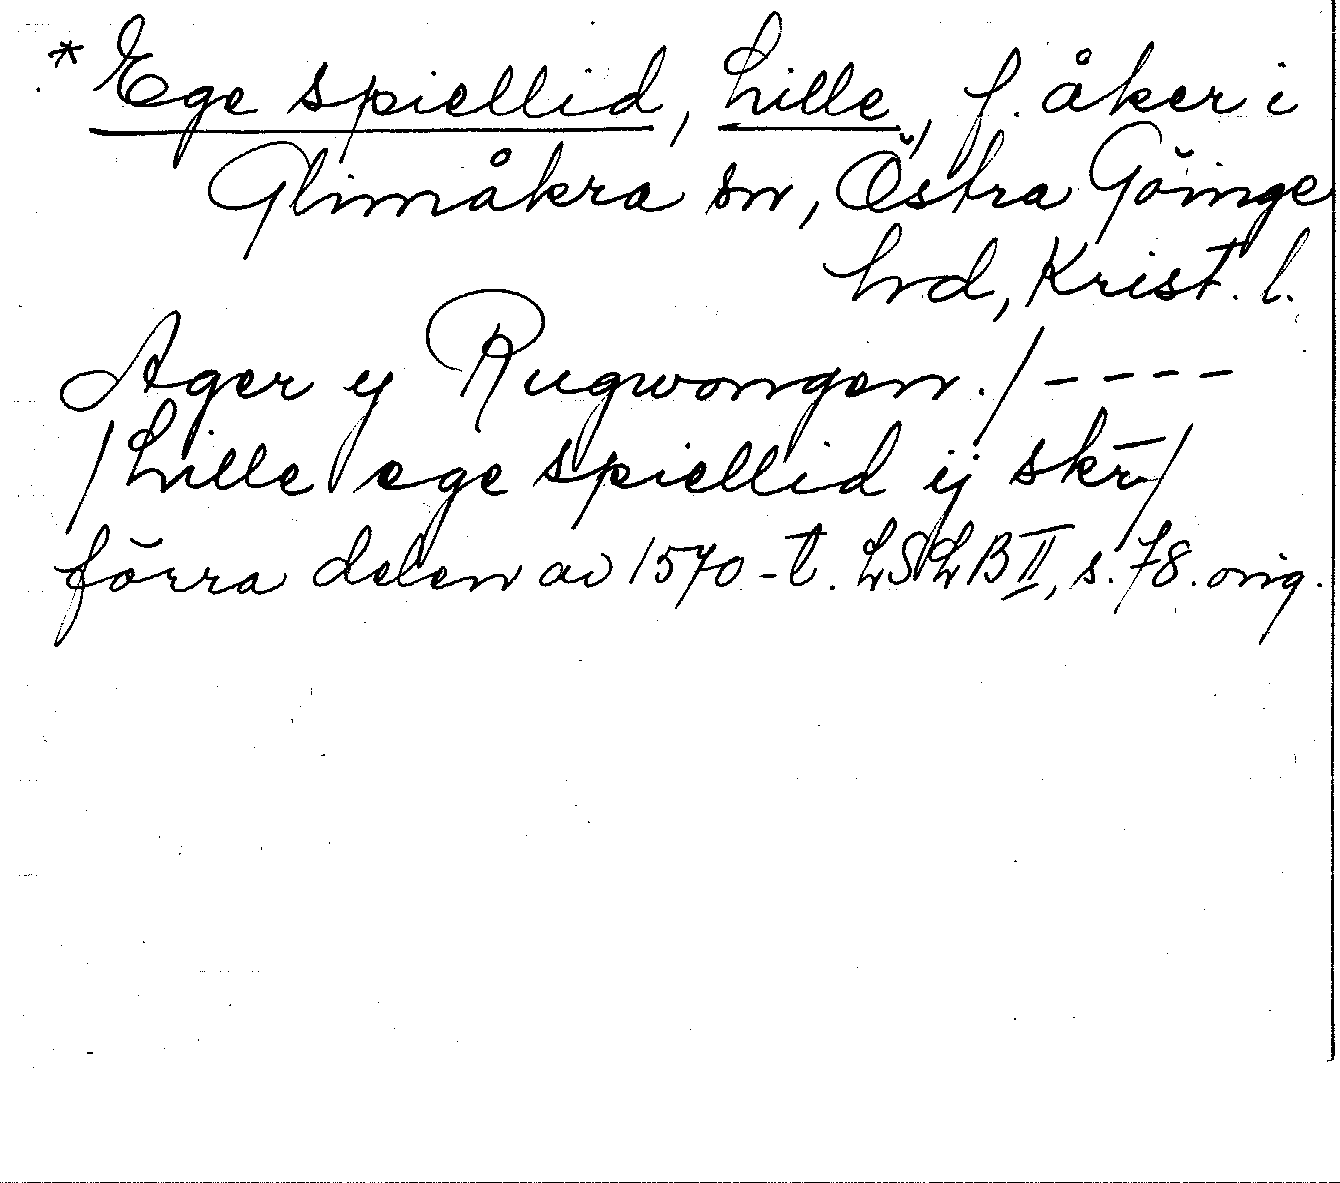 * Ege spiellid, Lille, f. åker i
Glimåkra sn, Östra Göinge
hd, Krist. l.
Ager y Rugwongen./----
/Lille ege spiellid ij skr̄/
förra delen av 1570-t. LSLB II, s. 78. orig.